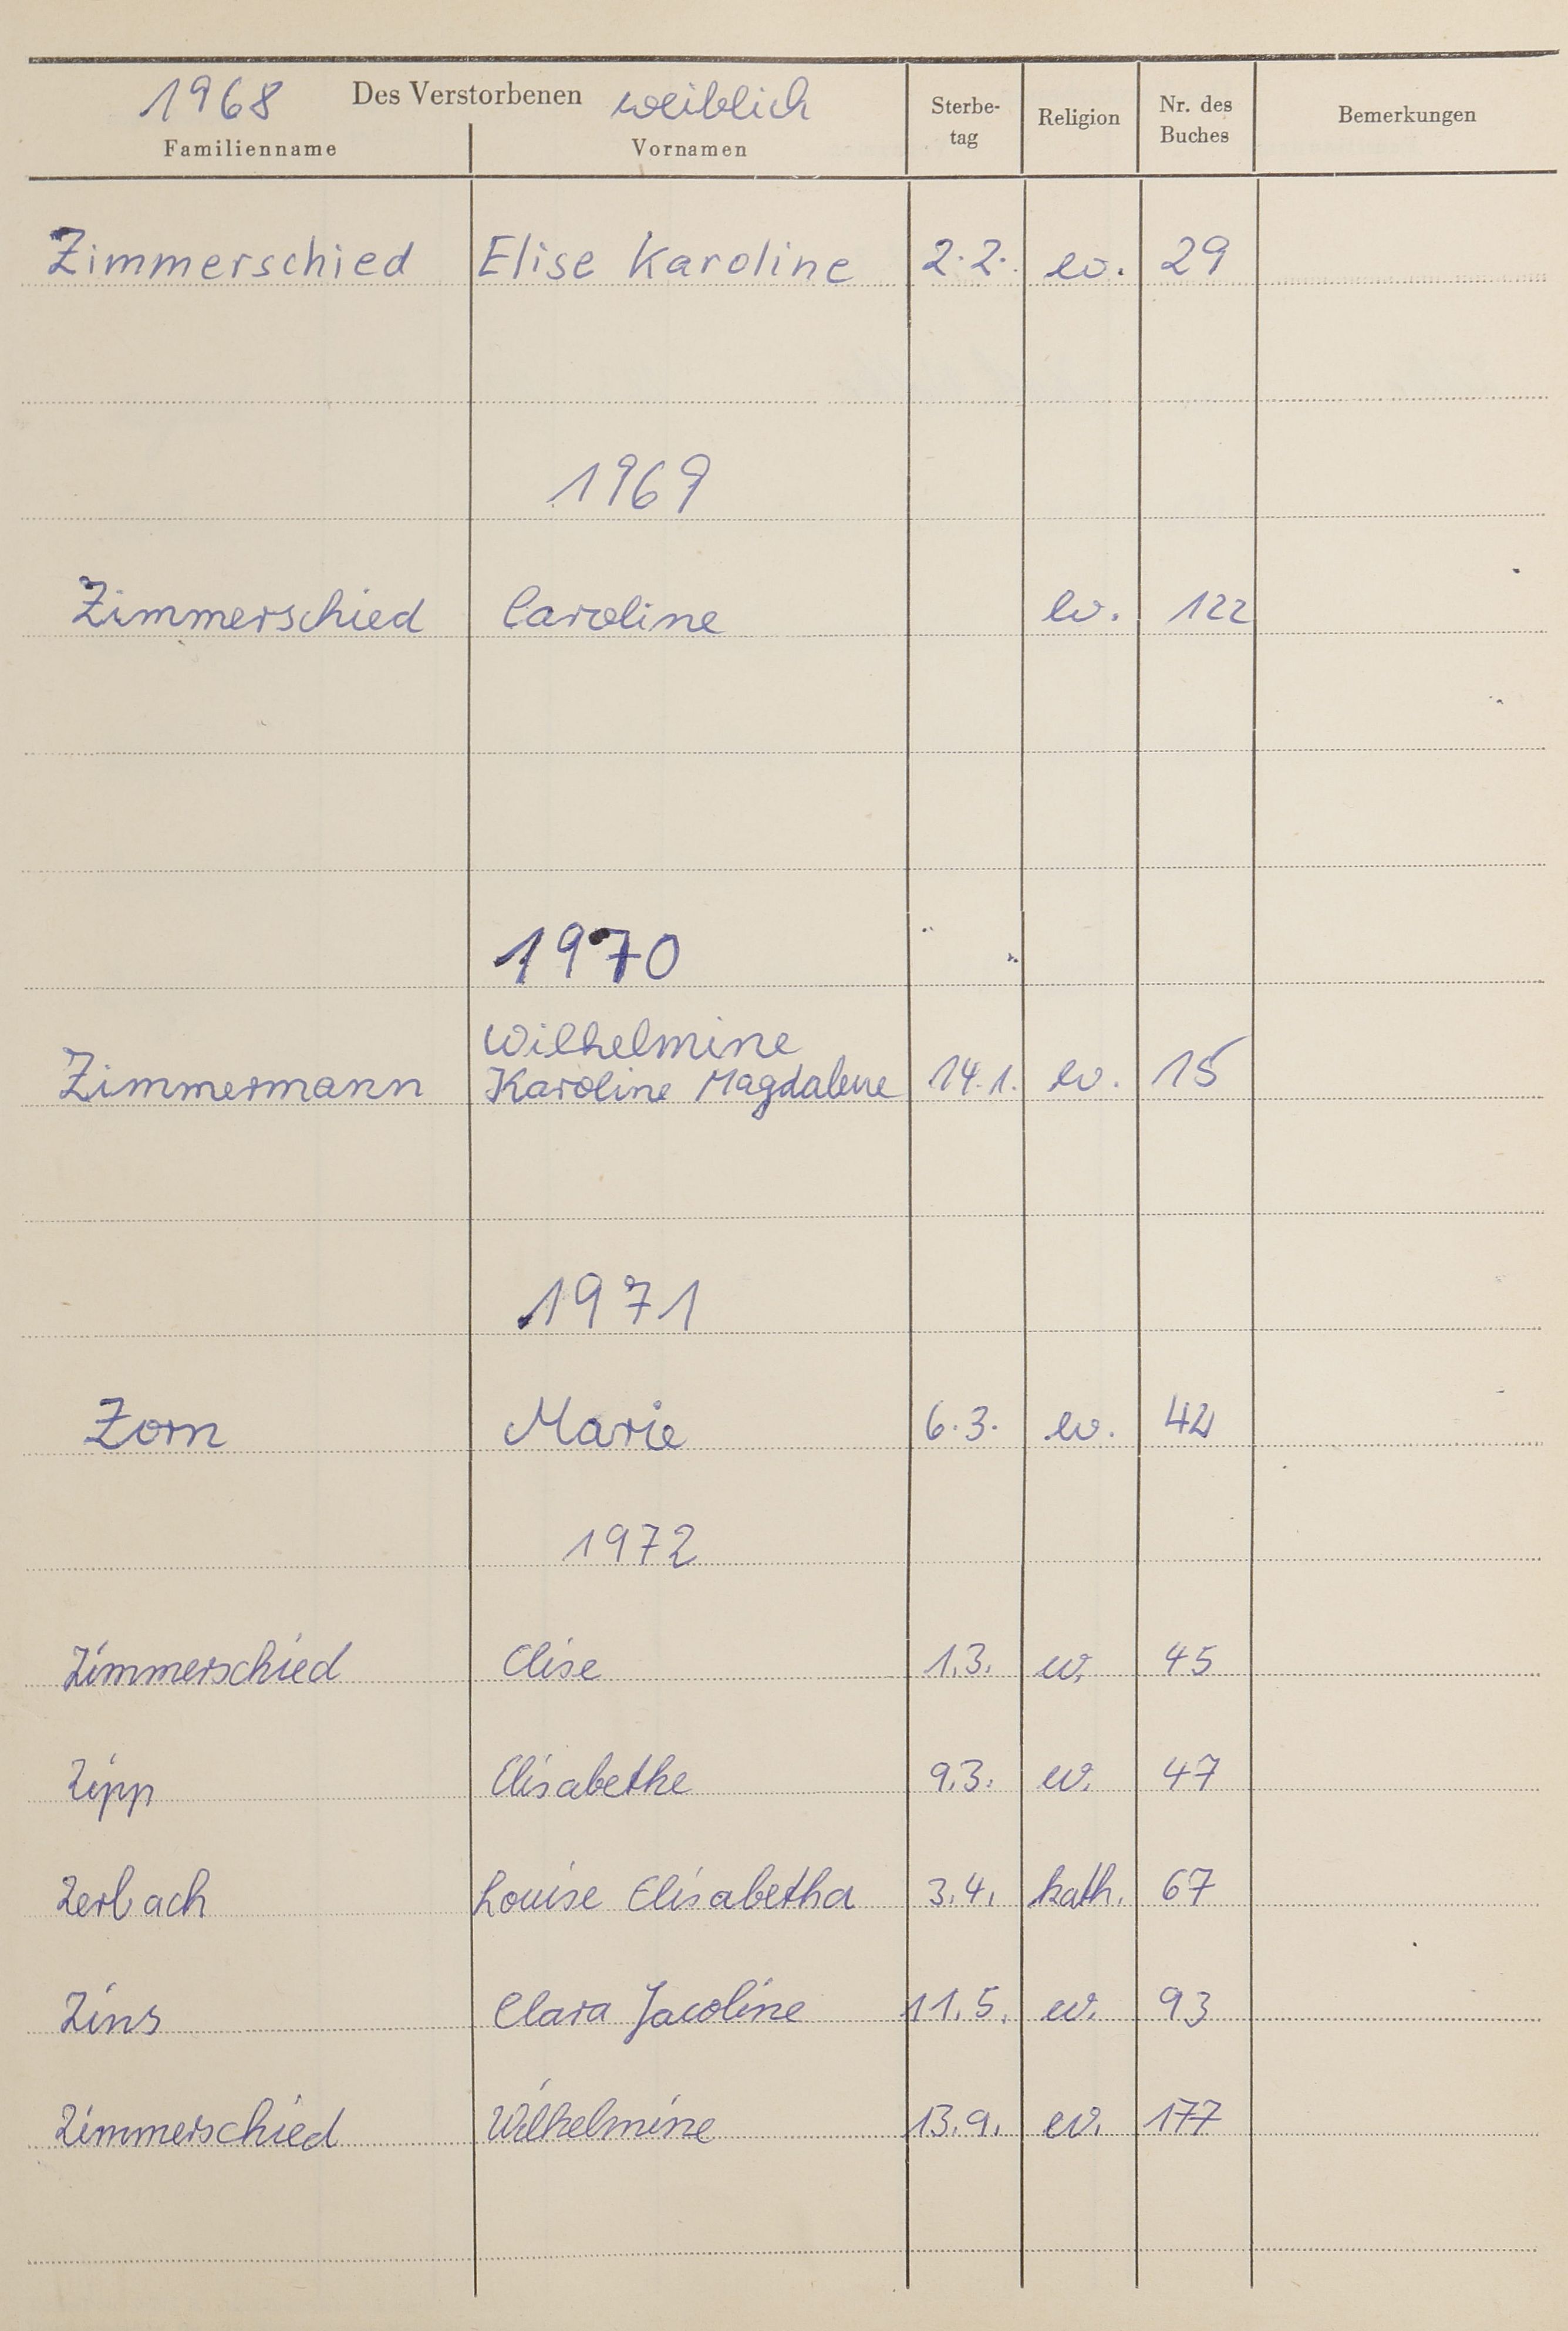 1968 Des Verstorbenen weiblich
Familienname Vornamen Sterbe-tag Religion Nr. des Buches Bemerkungen
Zimmerschied Elise Karoline 2.2. ev. 29
1969
Zimmerschied Caroline ev. 122
1970
Wilhelmine
Zimmermann Karoline Magdalene 14.1. ev. 15
1971
Zorn Marie 6.3. ev. 42
1972
Zimmerschied Elise 1.3. ev. 45
Zipp Elisabethe 9.3. ev. 47
Zerbach Louise Elisabetha 3.4. kath. 67
Zins Clara Jacoline 11.5. ev. 93
Zimmerschied Wilhelmine 13.9. ev. 177